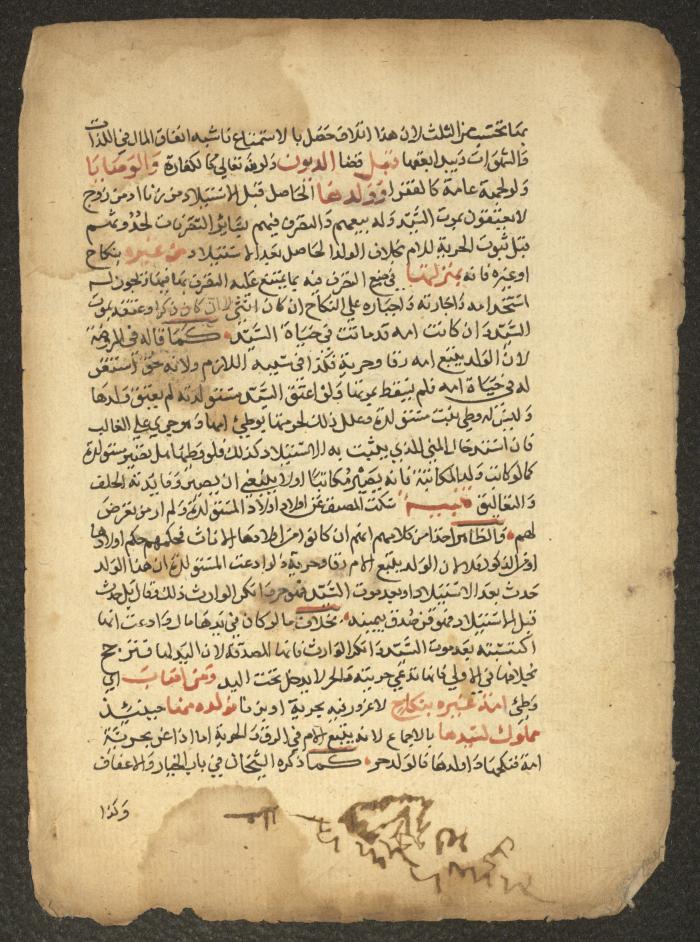 مما تحسب من الثلث لان هذا اتلاف حصل بالاستمتاع فاشبه انفاق المال في اللذات
والشهوات ويبدأ بعتقها قبل قضا الديون ولو لله تعالى كالكفارة والوصايا
ولو لجهة عامة كالفقرا وولدها الحاصل قبل الاستيلاد من زنا او من زوج
لا يعتقون بموت السيد وله بيعهم والتصرف فيهم بسائر التصرفات لحدوثهم
قبل ثبوت الحرية للام بخلاف الولد الحاصل بعد الاستيلاد من غيره بنكاح
او غيره فانه بمنزلتها في منع التصرف فيه بما يمتنع عليه التصرف به فيها ويجوز له
استخدامه واجارته واجباره على النكاح ان كان انثى لا ان كان ذكرا وعتقه بموت
السيد وان كانت امه قد ماتت في حياة السيد كما قاله في الروضة
لان الولد يتبع امه رقا وحرية فكذا في سببه اللازم ولانه حق استقر
له في حياة امه فلم يسقط بموتها ولو اعتق السيد مستولدته لم يعتق ولدها
وليس له وطئ بنت مستولدته وعلل ذلك بحرمتها بوطئ امها وهو جري على الغالب
فان استدخال المني الذي يثبت به الاستيلاد كذلك فلو وطئها هل تصير مستولدة
كما لو كاتب ولد المكاتبة فانه يصير مكاتبا اولا ينبغي ان يصير وفايدته الحلف
والتعاليق تنبيه سكت المصنف عن اولاد اولاد المستولدة ولم ار من تعرض
لهم والظاهر اخذا من كلامهم انهم ان كانوا من اولادها الاناث فحكمهم حكم اولادها
او من الذكور فلا لان الولد يتبع الام رقا وحرية ولو ادعت المستولدة ان هذا الولد
حدث بعد الاستيلاد او بعد موت السيد فهو حر وانكر الوارث ذلك وقال بل حدث
قبل الاستيلاد فهو قن صدق بيمينه بخلاف ما لو كان في يدها مال وادعت انها
اكتسبته بعد موت السيد وانكر الوارث فانها المصدقة لان اليد لها فترجح
بخلافها في الاولى فانها تدعي حريته والحر لا يدخل تحت اليد ومن اصاب اي
وطئ امة غيره بنكاح لا غرور فيه بحرية او بزنا فولده منها حينئذ
مملوك لسيدها بالاجماع لانه يتبع الام في الرق والحرية اما اذا غر بحرية
امة فنكحها واولدها فالولد حر كما ذكره الشيخان في باب الخيار والاعفاف
وكذا